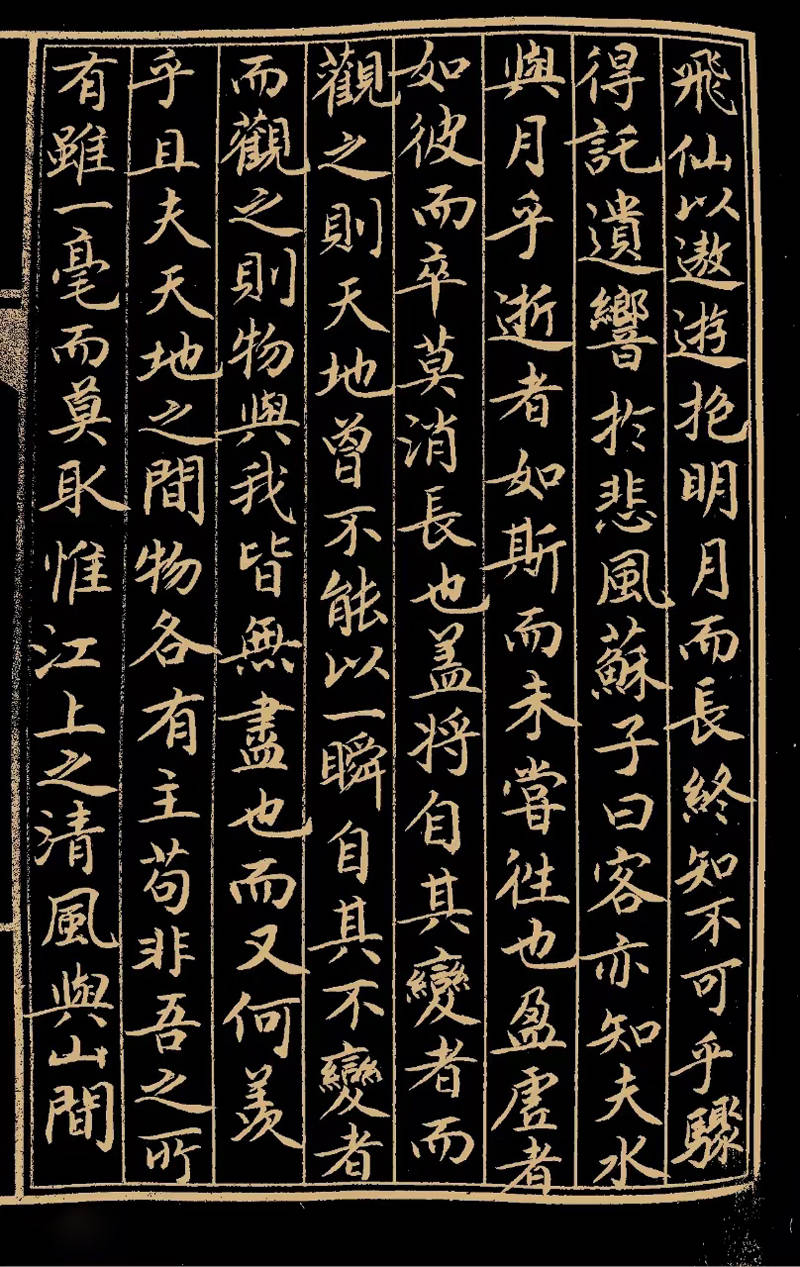 飛仙以遨遊抱明月而長終知不可乎驟
得託遺響於悲風蘇子曰客亦知夫水
與月乎逝者如斯而未嘗往也盈虛者
如彼而卒莫消長也蓋將自其變者而
觀之則天地曾不能以一瞬自其不變者
而觀之則物與我皆無盡也而又何羨
乎且夫天地之間物各有主苟非吾之所
有雖一毫而莫取惟江上之清風與山間